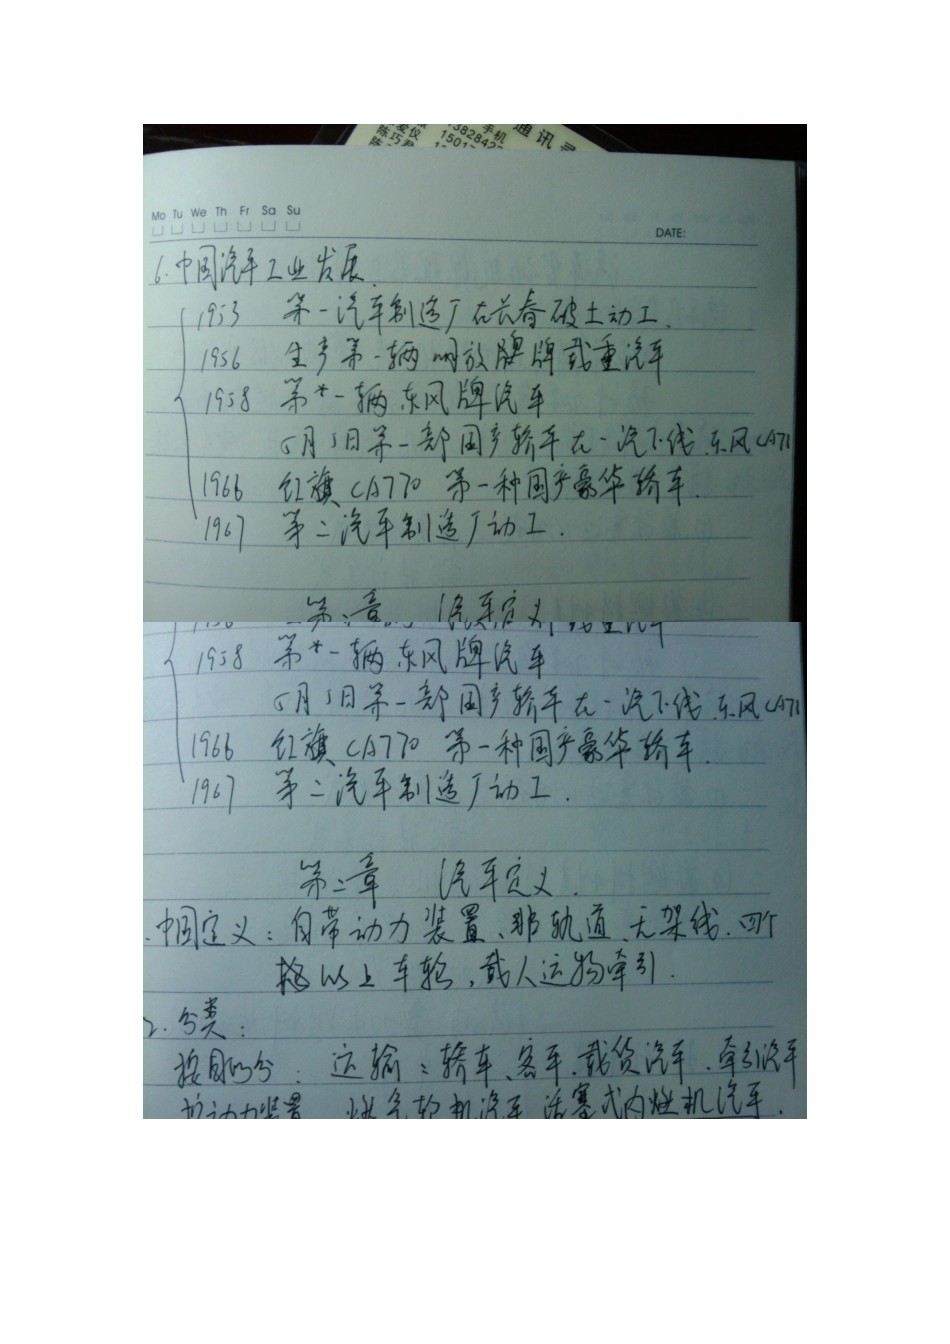 通讯录
手机
爱仪 13828422
陈巧君 1501
Mo Tu We Th Fr Sa Su
DATE:
6. 中国汽车工业发展.
1953 第一汽车制造厂在长春破土动工.
1956 生产第一辆解放牌牌载重汽车
1958 第一辆东风牌汽车
5月5日第一部国产轿车在一汽下线.东风CA71
1966 红旗CA770 第一种国产豪华轿车.
1967 第二汽车制造厂动工.
第二章 汽车定义
1958 第一辆东风牌汽车
5月5日第一部国产轿车在一汽下线.东风CA71
1966 红旗CA770 第一种国产豪华轿车.
1967 第二汽车制造厂动工.
第二章 汽车定义.
中国定义:自带动力装置、非轨道、无架线.四个
以上车轮,载人运物牵引.
2. 分类:
按目的分:运输:轿车、客车.载货汽车.牵引汽车
按动力装置 燃气轮机汽车 活塞式内燃机汽车.